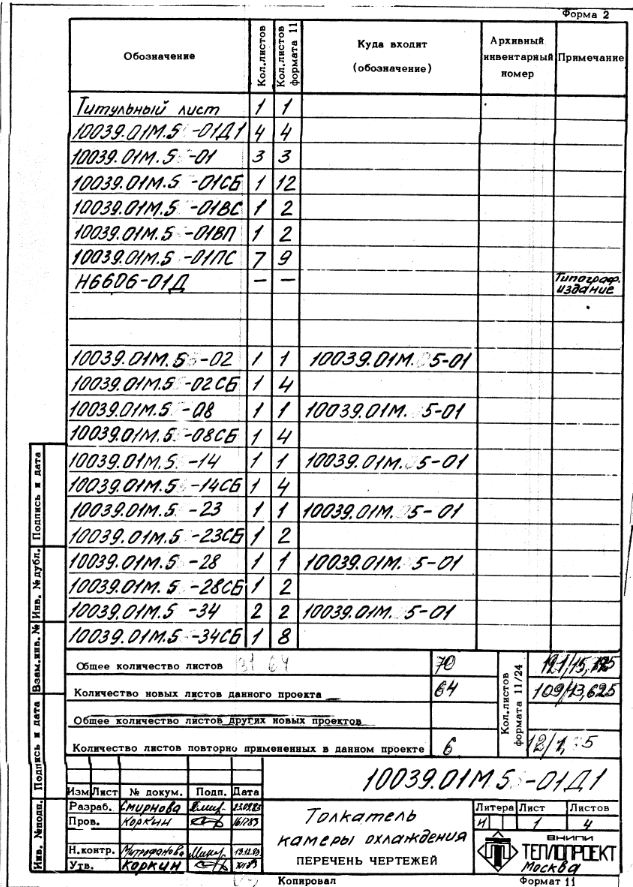 Форма 2
Обозначение Кол.листов Кол.листов формата 11 Куда входит (обозначение) Архивный инвентарный номер Примечание
Титульный лист 1 1
10039.01М.5 -01Д1 4 4
10039.01М.5 -01 3 3
10039.01М.5 -01СБ 1 12
10039.01М.5 -01ВС 1 2
10039.01М.5 -01ВП 1 2
10039.01М.5 -01ПС 7 9
Н6606-01Д — — Типограф. издание
10039.01М.5 -02 1 1 10039.01М. 5-01
10039.01М.5 -02СБ 1 4
10039.01М.5 -08 1 1 10039.01М. 5-01
10039.01М.5 -08СБ 1 4
10039.01М.5 -14 1 1 10039.01М. 5-01
10039.01М.5 -14СБ 1 4
10039.01М.5 -23 1 1 10039.01М. 5-01
10039.01М.5 -23СБ 1 2
10039.01М.5 -28 1 1 10039.01М. 5-01
10039.01М.5 -28СБ 1 2
10039.01М.5 -34 2 2 10039.01М. 5-01
10039.01М.5 -34СБ 1 8
Общее количество листов 70
Количество новых листов данного проекта 64 109/13,625
Общее количество листов других новых проектов
Количество листов повторно примененных в данном проекте 6
Кол.листов формата 11/24
Инв. №подл. Подпись и дата Взам.инв. № Инв. № дубл. Подпись и дата
10039.01М5 -01Д1
Изм Лист № докум. Подп. Дата
Разраб. Смирнова
Пров. Коркин
Н.контр. Митрофанова
Утв. Коркин
Толкатель
камеры охлаждения
ПЕРЕЧЕНЬ ЧЕРТЕЖЕЙ
Литера Лист Листов
И 1 4
ВНИПИ
ТЕПЛОПРОЕКТ
Москва
Копировал Формат 11